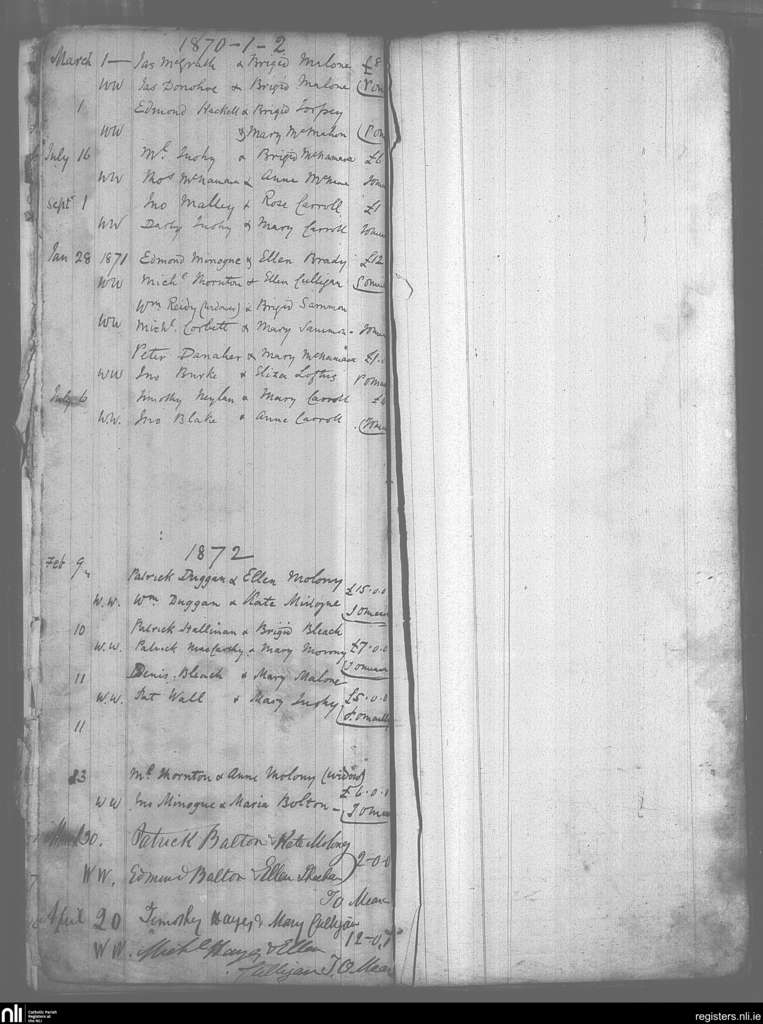 1870-1-2
March 1 — Jas McGrath & Brigid Malone £8
WW Jas Donohoe & Brigid Malone
1 Edmond Hackett & Brigid Torpey
WW & Mary McMahon
July 16 Ml. & Brigid McNamara £6
WW Thos McNamara & Anne
Sept 1 Jno Malley & Rose Carroll £1
WW Darby & Mary Carroll
Jan 28 1871 Edmond Minogue & Ellen Brady £12
WW Michl Thornton & Ellen Culligan
Wm Reidy (widower) & Brigid Sammon
WW Michl. Corbett & Mary Sammon -
Peter Danaher & Mary McNamara £1
WW Jno Burke & Eliza Loftus
July 6 Timothy Neylan & Mary Carroll
W.W. Jno Blake & Anne Carroll
1872
Feb 9 Patrick Duggan & Ellen Molony
£15.0.0
W.W. Wm Duggan & Kate Minogue
10 Patrick Hallinan & Brigid Bleach
£7.0.0
W.W. Patrick MacCarthy & Mary Morony
11 Denis Bleach & Mary Malone
£5.0.0
W.W. Pat Wall & Mary
11
23 Ml Thornton & Anne Molony (widow)
£6.0.0
WW Jno Minogue & Maria Bolton -
30. Patrick Balton & Kate Molony
2-0-0
WW. Edmund Balton & Ellen
T O Meara
April 20 Timothy Hayes & Mary Culligan
12-0
WW. Michl Hayes & Ellen
Culligan T. O Meara
nli Catholic Parish Registers at the NLI
registers.nli.ie